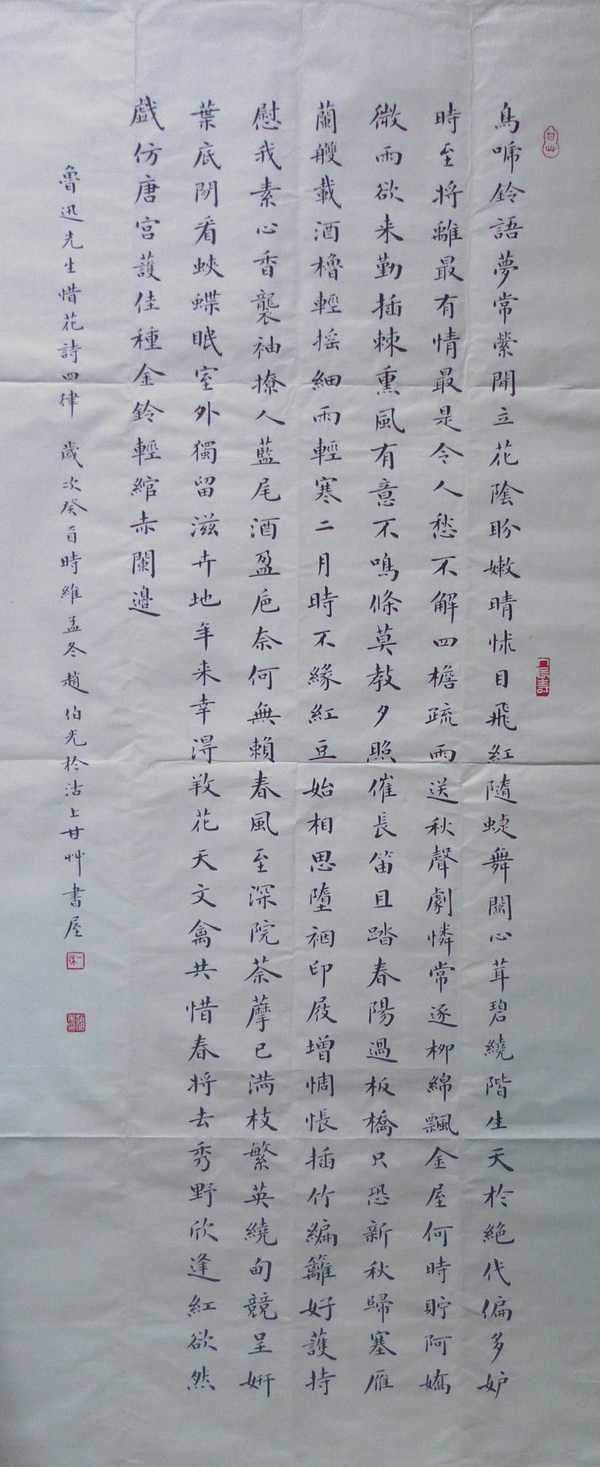 鳥啼鈴語夢常縈閒立花陰盼嫩晴怵目飛紅隨蜨舞關心茸碧繞階生天於絕代偏多妒
時至將離最有情最是令人愁不解四檐疏雨送秋聲劇憐常逐柳綿飄金屋何時貯阿嬌
微雨欲來勤插棘熏風有意不鳴條莫教夕照催長笛且踏春陽過板橋只恐新秋歸塞雁
蘭艭載酒櫓輕搖細雨輕寒二月時不緣紅豆始相思墮裀印屐增惆悵插竹編籬好護持
慰我素心香襲袖撩人藍尾酒盈卮奈何無賴春風至深院荼蘼已滿枝繁英繞甸競呈妍
葉底閒看蛺蝶眠室外獨留滋卉地年来幸得𢼝花天文禽共惜春將去秀野欣逢紅欲然
戲仿唐宮護佳種金鈴輕綰赤闌邊
魯迅先生惜花詩四律 歲次癸酉時維孟冬趙伯光於沽上甘艸書屋